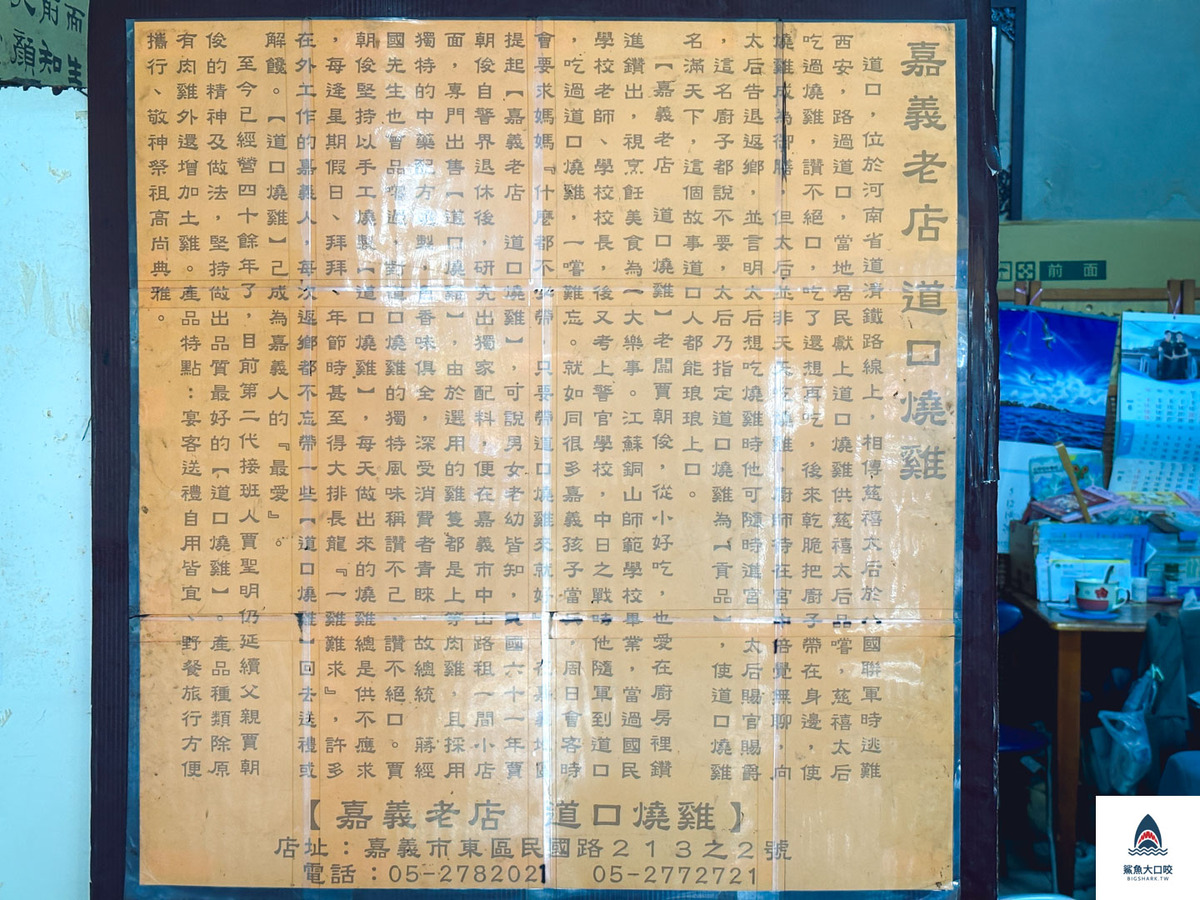 嘉義老店 道口燒雞
道口，位於河南省道清鐵路線上，相傳慈禧太后於八國聯軍時逃難
西安，路過道口，當地居民獻上道口燒雞供慈禧太后品嚐，慈禧太后
吃過燒雞，讚不絕口，吃了還想再吃，後來乾脆把廚子帶在身邊，使
燒雞成為御膳，但太后並非天天吃燒雞，廚師待在宮中倍覺無聊，向
太后告退返鄉，並言明太后想吃燒雞時他可隨時進宮，太后賜官賜爵
，這名廚子都說不要，太后乃指定道口燒雞為【貢品】，使道口燒雞
名滿天下，這個故事道口人都能琅琅上口。
【嘉義老店 道口燒雞】老闆賈朝俊，從小好吃，也愛在廚房裡鑽
進鑽出，視烹飪美食為一大樂事。江蘇銅山師範學校畢業，當過國民
學校老師、學校校長，後又考上警官學校，中日之戰時他隨軍到道口
，吃過道口燒雞，一嚐難忘。就如同很多嘉義孩子當，周日會客時
會要求媽媽『什麼都不要帶，只要帶道口燒雞來就好』在嘉義地區
提起【嘉義老店 道口燒雞】，可說男女老幼皆知，民國六十一年賈
朝俊自警界退休後，研究出獨家配料，便在嘉義市中山路租一間小店
面，專門出售【道口燒雞】，由於選用的雞隻都是上等肉雞，且採用
獨特的中藥配方滷製，色香味俱全，深受消費者青睞，故總統 蔣經
國先生也曾品嚐過，對道口燒雞的獨特風味稱讚不己，讚不絕口。賈
朝俊堅持以手工燒製【道口燒雞】，每天做出來的燒雞總是供不應求
，每逢星期假日、拜拜、年節時甚至得大排長龍『一雞難求』，許多
在外工作的嘉義人，每次返鄉都不忘帶一些【道口燒雞】回去送禮或
解饞。【道口燒雞】己成為嘉義人的『最愛』。
至今已經營四十餘年了，目前第二代接班人賈聖明仍延續父親賈朝
俊的精神及做法，堅持做出品質最好的【道口燒雞】。產品種類除原
有肉雞外還增加土雞。產品特點：宴客送禮自用皆宜、野餐旅行方便
攜行、敬神祭祖高尚典雅。
【嘉義老店 道口燒雞】
店址：嘉義市東區民國路213之2號
電話：05-2782021 05-2772721
前面
鯊魚大口咬
BIGSHARK.TW